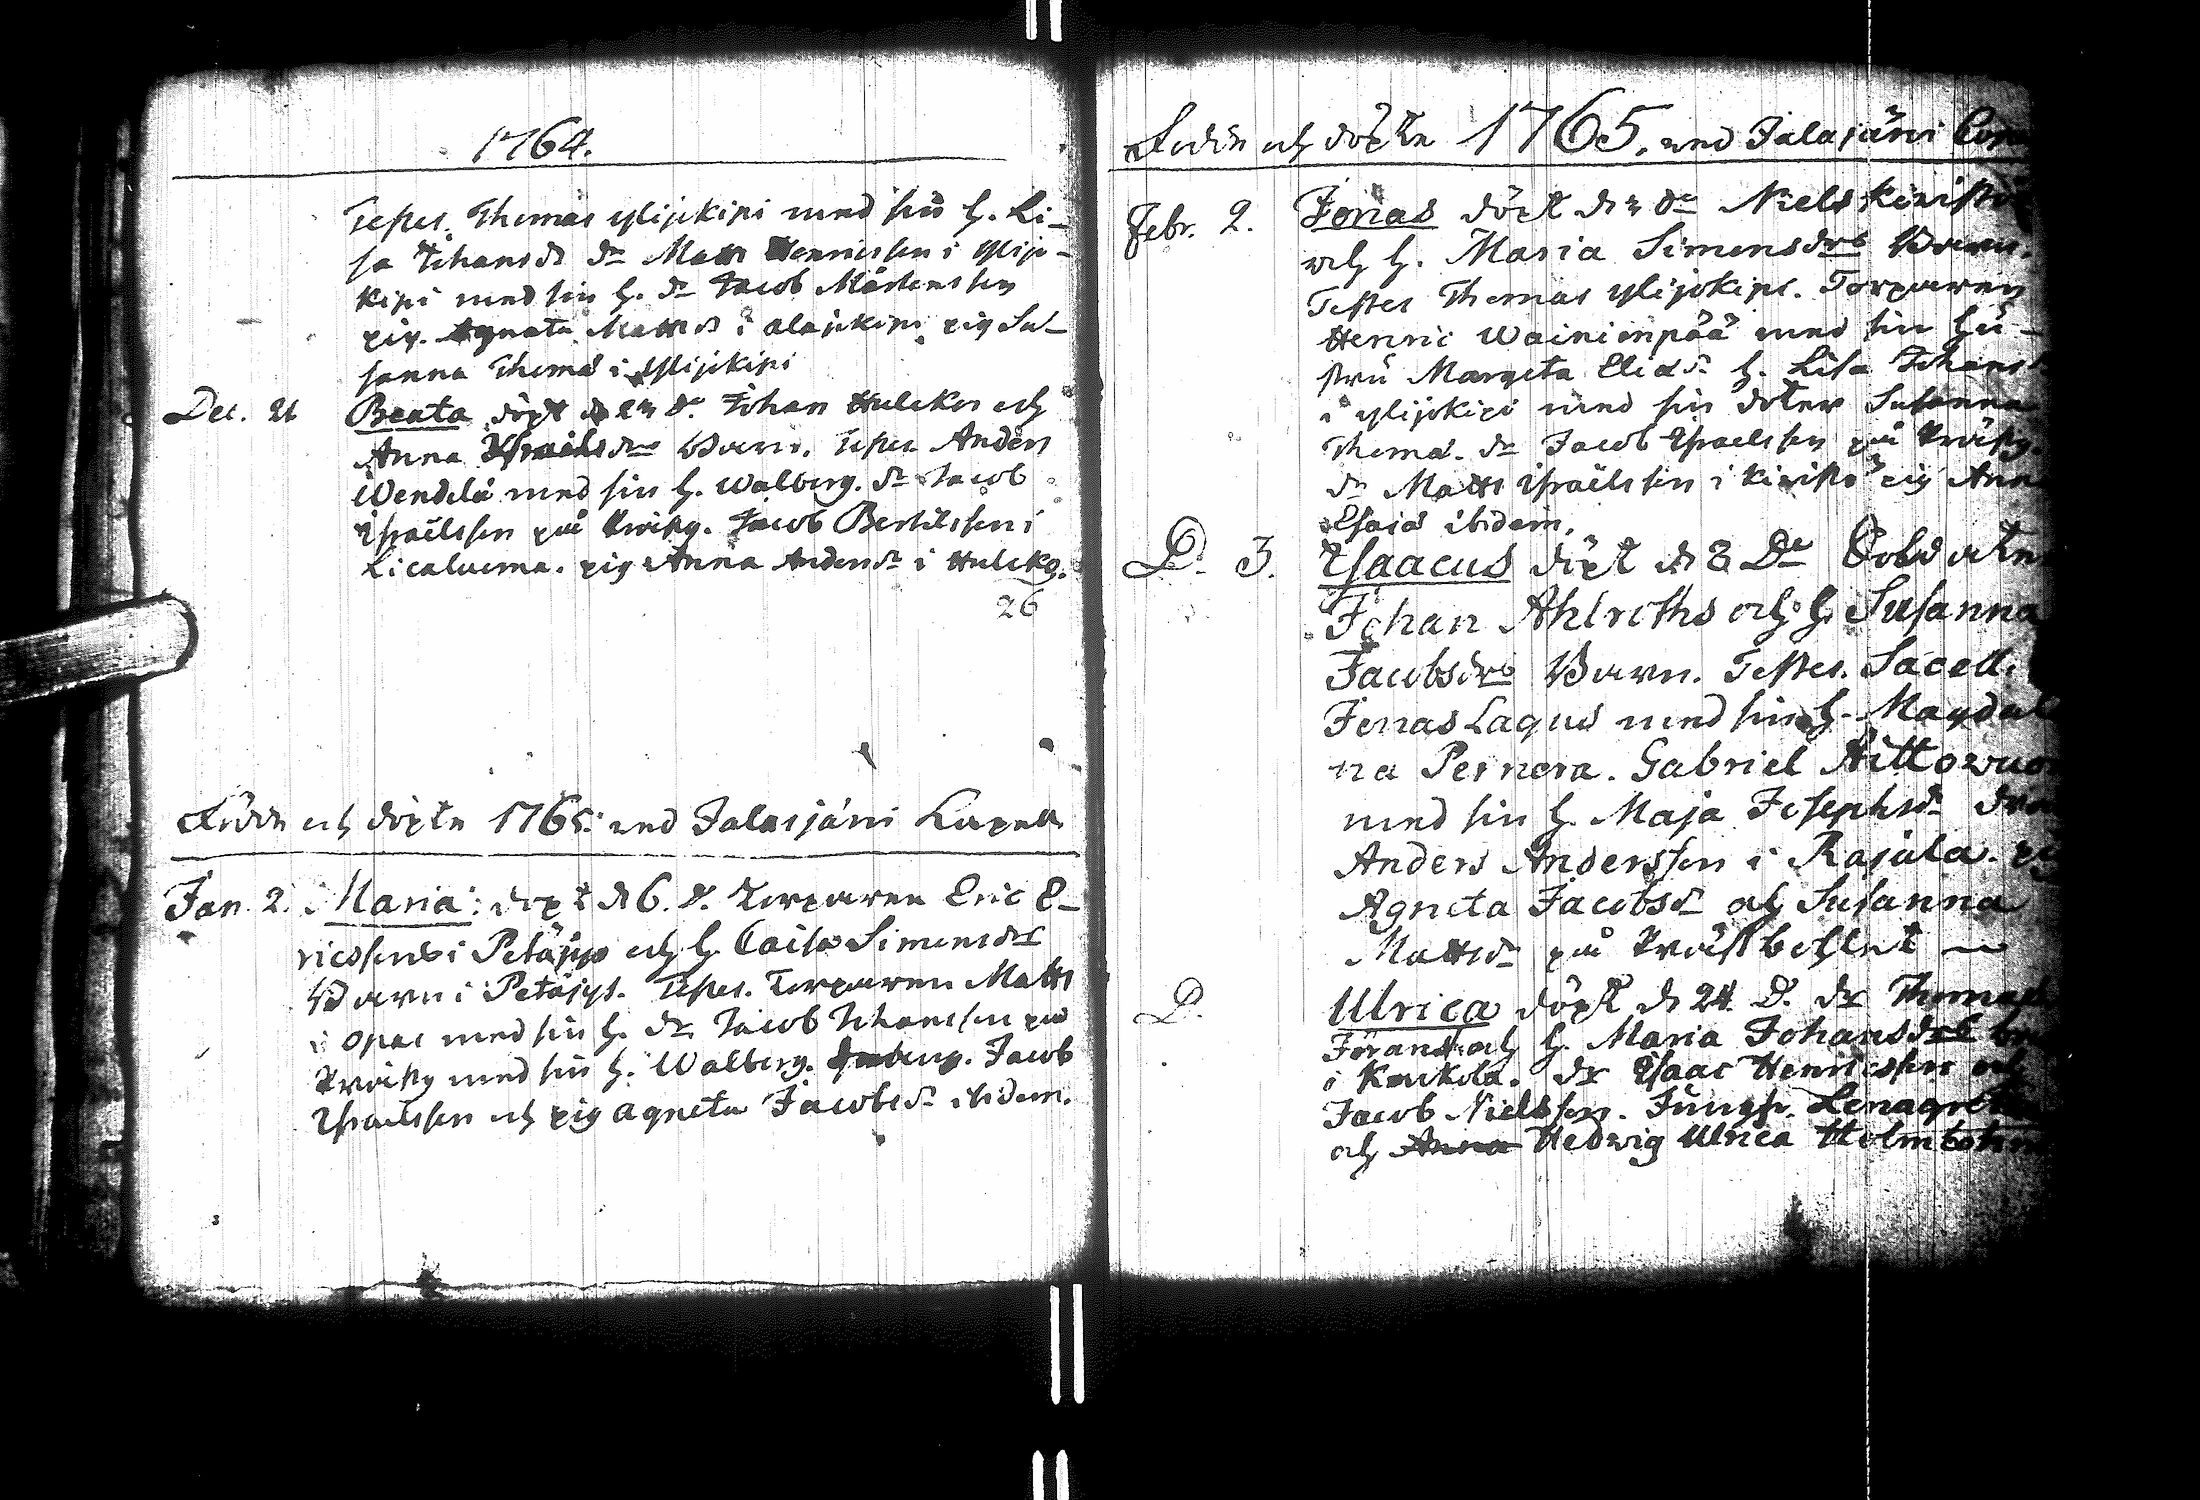 1764.
Testes. Thomas ylijokipi med sin h. Li-
sa Johansd dr Matts Henricsson i ylijo-
kipi med sin h. dr Jacob Mårtensson
pig. Agneta Mattsd i alajokipi pig Su-
sanna Thomæd i ylijokipi
Dec. 21 Beata döpt d 23 dr. Johan Hulckos och
Anna Israelsdrs Barn. Testes. Anders
Wendelä med sin h. Walborg. dr Jacob
Israelsson på Prästg. Jacob Bertilsson i
Licaluoma. pig Anna Andersd i Hulcko.
26
Födde och döpte 1765. wed Jalasjärvi Capell
Jan. 2. Maria: döpt d 6. d. Torparen Eric E-
ricssons i Petäjys och h. Caisa Simonsdrs
Barn i Petäjys. Testes. Torparen Matts
i Opas med sin h. dr Jacob Johansson på
Prästg med sin h. Walborg. Jacob
Israelsson och pig Agneta Jacobsd. ibidem.
Födde och döpte 1765. wed Jalasjärvi
Febr. 2. Jonas döpt d 3 dr Niels Kivistö
och h. Maria Simonsdrs Barn.
Testes Thomas ylijokipi. Torparen
Henric Wainionpää med sin hu-
stru Margeta Eliæd. h. Lisa Johansd
i ylijokipi med sin doter Susanna
Thomæd. dr Jacob Israelsson på Prästg.
dr Matts Israelsson i Kivistö pig Anna
Esaiæd ibidem.
D. 3. Isaacus döpt d 8 Dr Soldaten
Johan Ahlroths och h. Susanna
Jacobsdrs Barn. Testes. Sacell.
Jonas Lagus med sin h. Magdale
na Pernera. Gabriel Hittowuo
med sin h. Maja Josephsd. dr
Anders Andersson i Rajala. pig
Agneta Jacobsd och Susanna
Mattsd på Prästbohlet
D. Ulrica döpt d 24. D. dr Thomas
Förands och h. Maria Johansdrs
i Koukola. dr Isaac Henricsson och
Jacob Nielsson. Jungfr. Lenagreta
och Anna Hedwig Ulrica Holmbohm